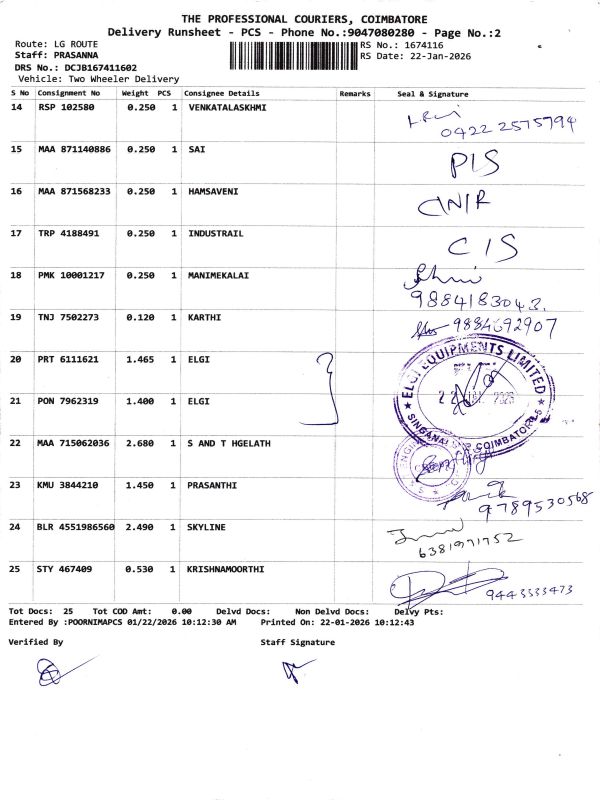 THE PROFESSIONAL COURIERS, COIMBATORE
Delivery Runsheet - PCS - Phone No.:9047080280 - Page No.:2
Route: LG ROUTE RS No.: 1674116
Staff: PRASANNA RS Date: 22-Jan-2026
DRS No.: DCJB167411602
Vehicle: Two Wheeler Delivery
S No Consignment No Weight PCS Consignee Details Remarks Seal & Signature
14 RSP 102580 0.250 1 VENKATALASKHMI
0422 2575794
15 MAA 871140886 0.250 1 SAI PIS
16 MAA 871568233 0.250 1 HAMSAVENI
17 TRP 4188491 0.250 1 INDUSTRAIL CIS
18 PMK 10001217 0.250 1 MANIMEKALAI
9884183043.
19 TNJ 7502273 0.120 1 KARTHI 9884692907
20 PRT 6111621 1.465 1 ELGI
ELGI EQUIPMENTS LIMITED
21 PON 7962319 1.400 1 ELGI
22 MAA 715062036 2.680 1 S AND T HGELATH
23 KMU 3844210 1.450 1 PRASANTHI
9789530568
24 BLR 4551986560 2.490 1 SKYLINE
6381971752
25 STY 467409 0.530 1 KRISHNAMOORTHI
9443333473
Tot Docs: 25 Tot COD Amt: 0.00 Delvd Docs: Non Delvd Docs: Delvy Pts:
Entered By :POORNIMAPCS 01/22/2026 10:12:30 AM Printed On: 22-01-2026 10:12:43
Verified By Staff Signature